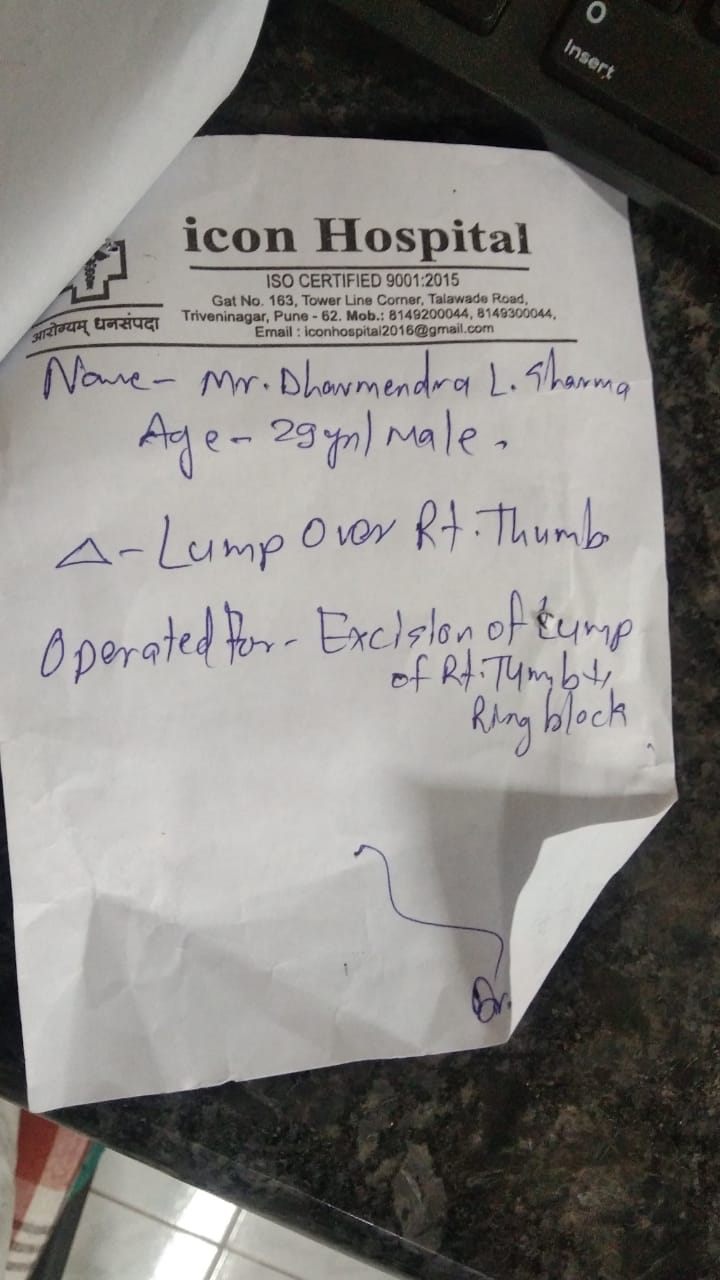 O
Insert
icon Hospital
ISO CERTIFIED 9001:2015
Gat No. 163, Tower Line Corner, Talawade Road,
Triveninagar, Pune - 62. Mob.: 8149200044, 8149300044,
Email : iconhospital2016@gmail.com
आरोग्यम् धनसंपदा
Name - Mr. Dharmendra L. Sharma
Age - 29yrs/ Male.
△ - Lump Over Rt. Thumb
Operated For - Excision of Lump
of Rt. Thumb
Ring block
Dr.